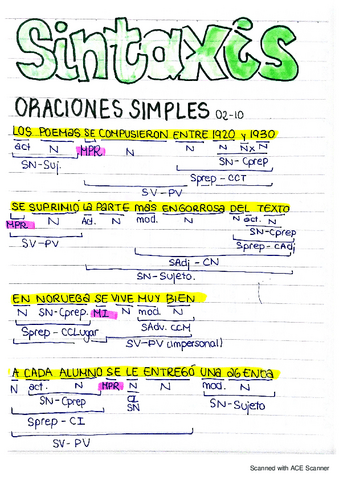 Sintaxis
ORACIONES SIMPLES 02-10
LOS POEMAS SE COMPUSIERON ENTRE 1920 y 1930
act N MPR N N N Nx N
SN-Suj. SN-Cprep
Sprep-CCT
SV-PV
SE SUPRIMIÓ LA PARTE más ENGORROSA DEL TEXTO
MPR N Ad. N mod. N N act. N
SN-Cprep
SV-PV Sprep-CAdj
SAdj-CN
SN-Sujeto.
EN NORUEGA SE VIVE MUY BIEN
N SN-Cprep. MI N mod. N
Sprep-CCLugar SAdv. CCM
SV-PV (impersonal)
A CADA ALUMNO SE LE ENTREGÓ UNA agenda
N act. N MPR N N mod. N
SN-Cprep CI SN-Sujeto
SN
Sprep-CI
SV-PV
Scanned with ACE Scanner